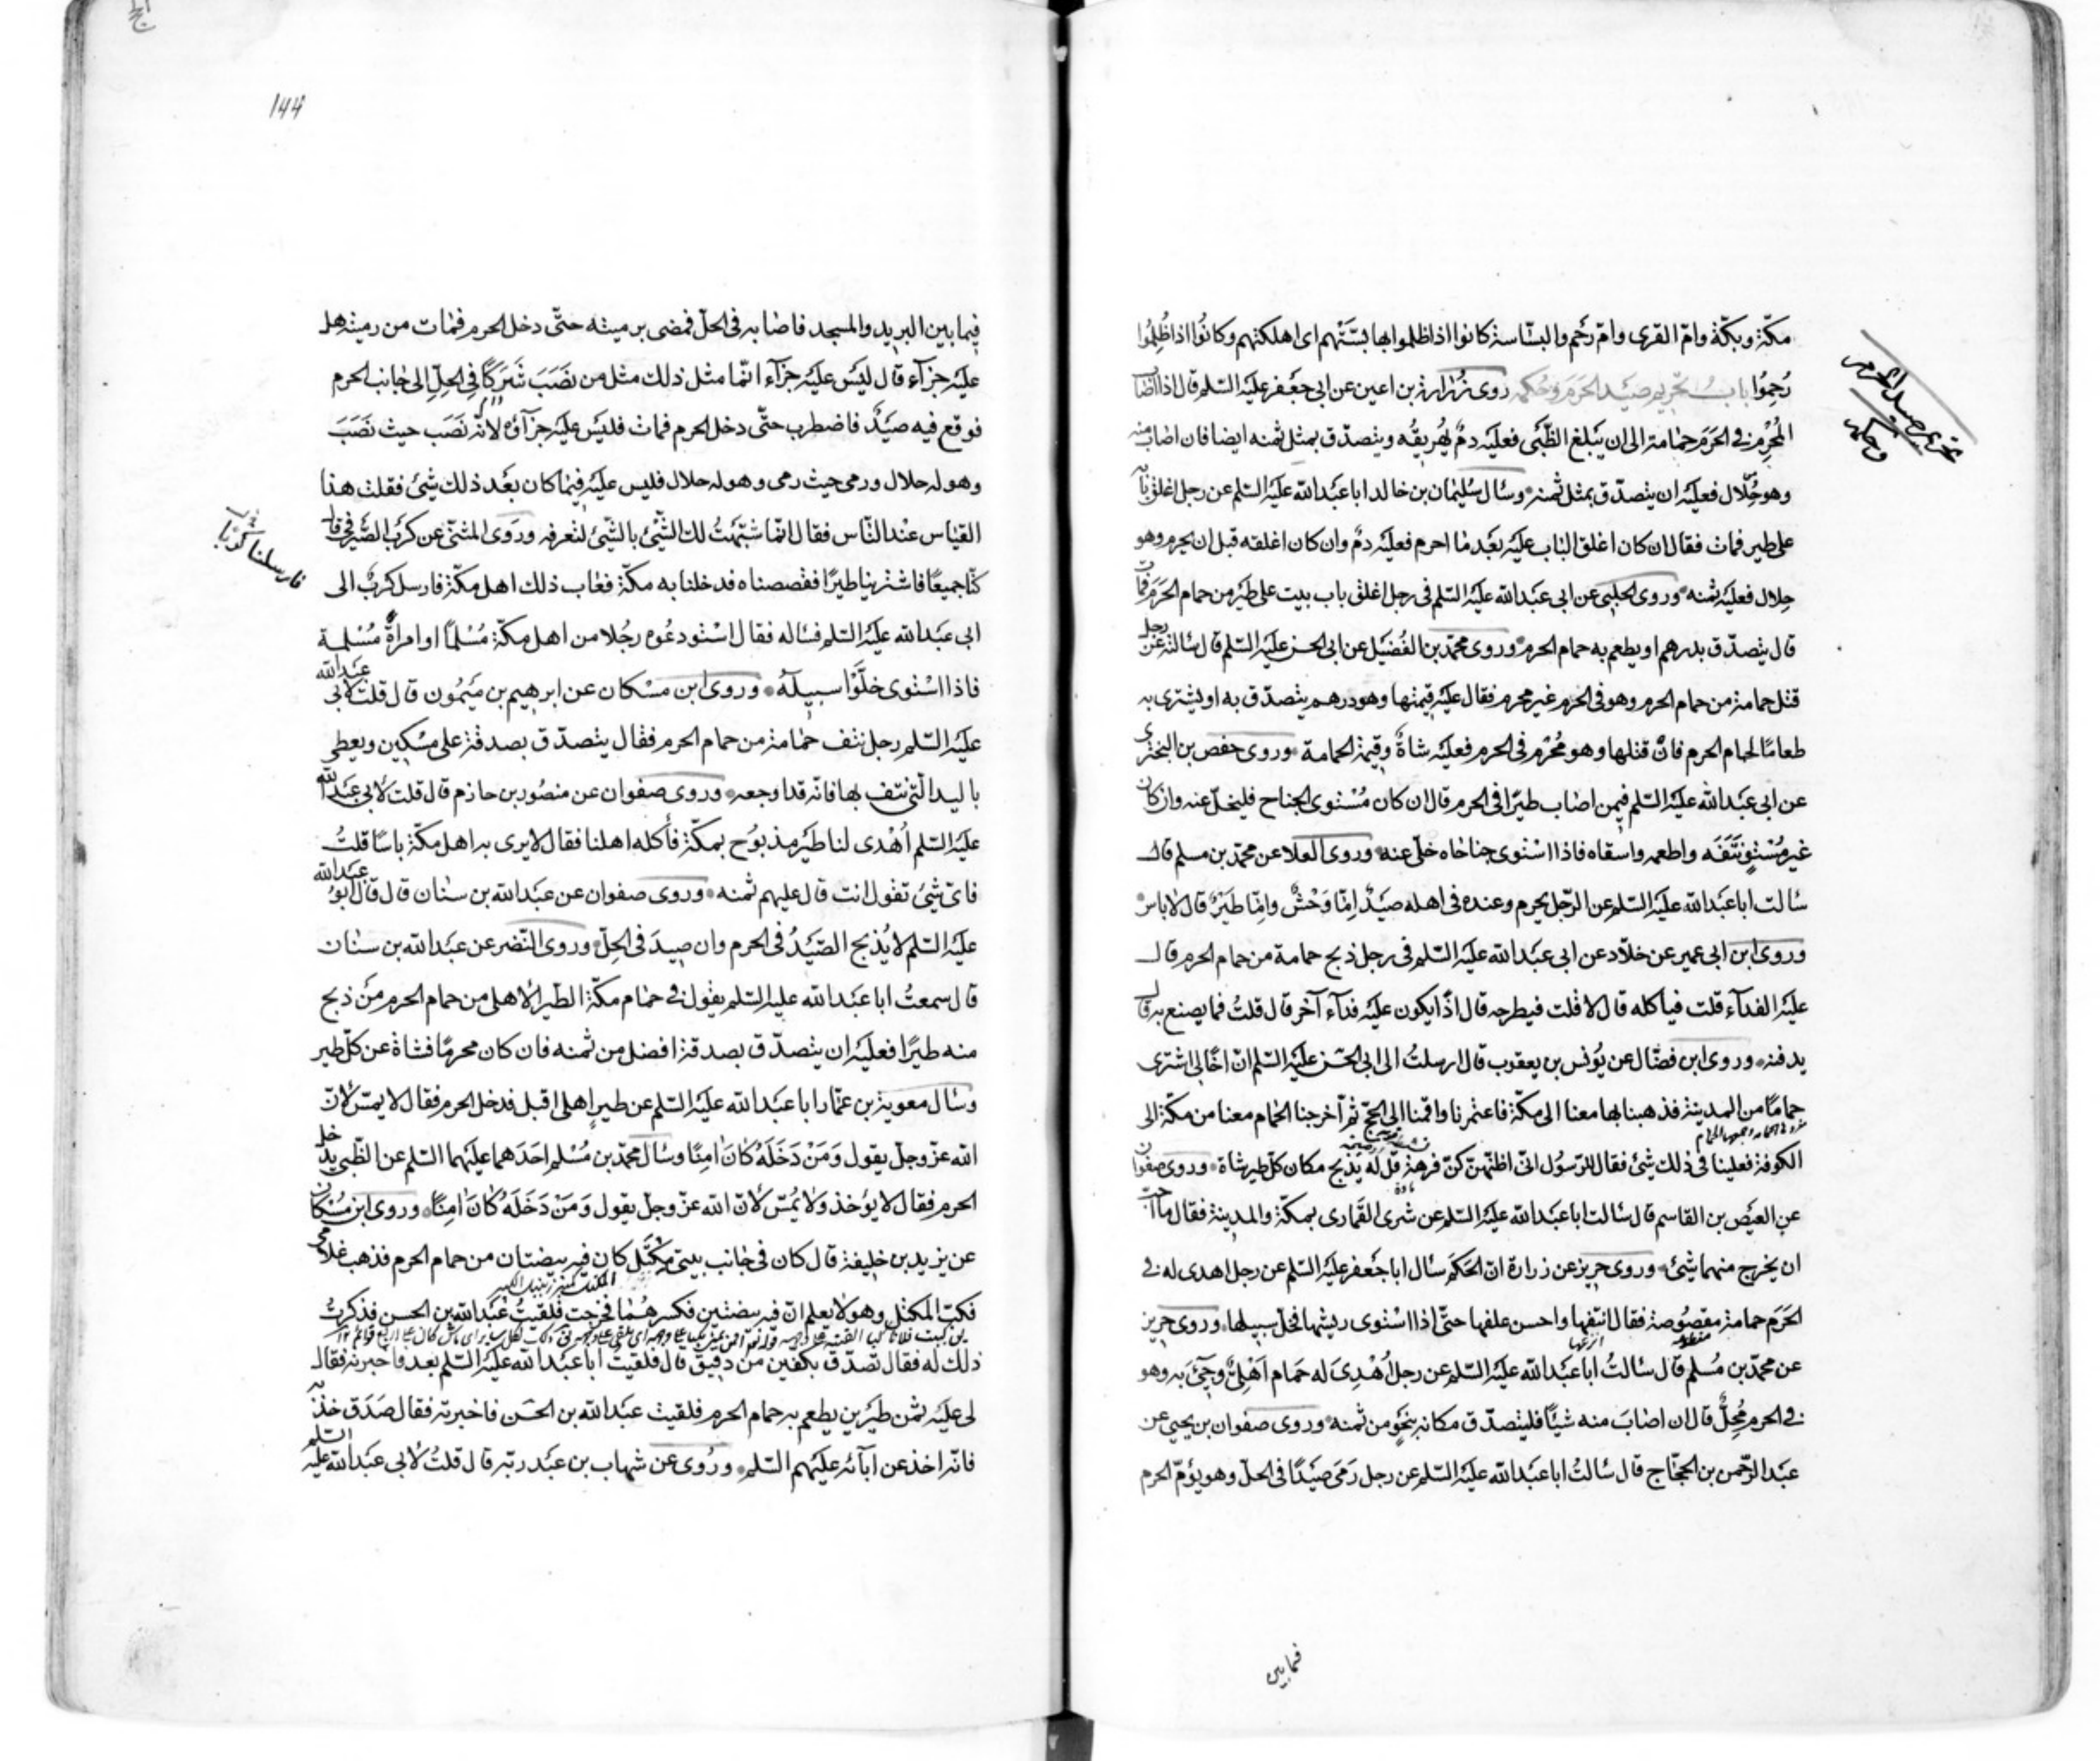 مكّة وبكّة وامّ القرى وامّ رُحم والبسّاسة كانوا اذا ظلموا بها بسّتهم اى اهلكتهم وكانُوا اذا ظُلِمُوا
رُحِمُوا بابُ تحريم صَيْد الحَرَم وحُكمه روى زُرٰارة بن اعين عن ابى جعَفر عليَه السّلم قال اذا اصٰاب
المُحْرِم فى الحَرَم حمٰامة الى ان يَبلغ الظَّبْى فعليَه دمٌ يُهَريقُه ويتصدّق بمثل ثمنه ايضا فان اصٰاب منه
وهو حَلٰال فعليَه ان يتصدّق بمثل ثمنه وسٔال سُليمٰان بن خالد ابا عبَدالله عليَه السّلم عن رجل اغلق بابه
على طير فمات فقال ان كان اغلق البٰاب عليَه بعَد مٰا احرم فعليَه دمٌ وان كان اغلقه قبل ان يحرم وهو
حلال فعليَه ثمنه وروى الحلبى عن ابى عبَدالله عليَه السّلم فى رجل اغلق باب بيت على طيَر من حمام الحَرَم فمات
قال يتصدّق بدرهم او يطعم به حمام الحرم وروى محمّد بن الفُضيَل عن ابى الحسن عليَه السّلم قال سٔالته عن رجل
قتل حمامة من حمام الحرم وهو فى الحرم غير محرم فقال عليَه قيمتها وهو درهم يتصدّق به او يشترى به
طعامًا لحمام الحرم فانْ قتلها وهو مُحْرِم فى الحرم فعليَه شاةٌ وقيمة الحمامة وروى حفص بن البخترى
عن ابى عبَدالله عليَه السّلم فيمن اصٰاب طيرًا فى الحرم قال ان كان مُسْتوى الجناح فليخلّ عنه وان كان
غير مُسْتوٍ نتَفَه واطعمه واسقاه فاذا اسْتوى جناحٰاه خلّى عنه وروى العلا عن محمّد بن مسلم قال
سٔالت ابا عبَدالله عليَه السّلم عن الرّجل يحرم وعنده فى اهله صَيْدٌ امّا وَحْشٌ وامّا طَيْرٌ قال لا باس
وروى ابن ابى عمير عن خلّاد عن ابى عبَدالله عليَه السّلم فى رجل ذبح حمامة من حمام الحرم قال
عليَه الفدآء قلت فيأكله قال لا قلت فيطرحه قال اذًا يكون عليَه فدآء آخر قال قلتُ فما يصنع به قال
يدفنه وروى ابن فضّال عن يُونس بن يعقوب قال ارسلتُ الى ابى الحسَن عليَه السّلم انّ اخًا لى اشترى
حمامًا من المدينة فذهبنا بها معنا الى مكّة فاعتمرنا واقمنا الى الحجّ ثم اخرجنا الحمام معنا من مكّة الى
الكوفة فعلينا فى ذلك شئ فقال للرّسُول انّى اظنّهنّ كنّ فرهة قل له يذبح مكان كلّ طير شاة وروى صفوان
عن العيَص بن القاسم قال سٔالت ابا عبَدالله عليَه السّلم عن شرى القمارى بمكّة والمدينة فقال ما احبّ
ان يخرج منهما شئ وروى حريز عن زرارة انّ الحَكَم سٔال ابا جعَفر عليَه السّلم عن رجل اهدى له فى
الحَرَم حمامة مقصُوصة فقال انتفها واحسن علفها حتّى اذا اسْتوى ريشها فخلّ سبيلها وروى حريز
عن محمّد بن مُسلم قال سٔالتُ ابا عبَدالله عليَه السّلم عن رجل اُهْدِىَ له حَمَام اَهْلِىٌّ وجِئَ به وهو
فى الحرم مُحِلٌّ قال ان اصٰابَ منه شئًا فليتصدّق مكانه بنحَوٍ من ثمنه وروى صفوان بن يحيى عن
عبَد الرّحمن بن الحجّاج قال سٔالتُ ابا عبَدالله عليَه السّلم عن رجل رَمَى صَيَدًا فى الحلّ وهو يؤمّ الحرم
تحريم صيد الحرم
وحكمه
فيما بين
144
فيما بين البريد والمسجد فاصٰابه فى الحلّ فمضى برميته حتّى دخل الحرم فمٰات من رميته هل
عليَه جزآء قال ليَس عليَه جزآء انّما مثل ذلك مثل من نصَبَ شَرَكًا فى الحِلِّ الى جٰانب الحرم
فوقع فيه صيَدٌ فاضطرب حتّى دخل الحرم فمات فليَس عليَه جزآؤه لانّه نصَبَ حيث نصَبَ
وهو له حلال ورمى حيث رمى وهو له حلال فليس عليَه فيمٰا كان بعَد ذلك شئ فقلت هذا
القيٰاس عنْد النّاس فقال انّما شبّهَتُ لك الشَّئ بالشّئ لتعرفه ورَوى المثنّى عن كرب الصّيرفى قال
كنّا جميعًا فاشترينا طيرًا فقصصناه فدخلنا به مكّة فعٰاب ذلك اهل مكّة فارسل كربٌ الى
ابى عبَدالله عليَه السّلم فسٔاله فقال اسْتودعُوه رجُلا من اهل مكّة مُسْلمًا او امرأةً مُسْلمة
فاذا اسْتوى خلَّوْا سبيلهُ وروى ابن مسْكان عن ابرهيم بن ميَمُون قال قلت لابى عبَدالله
عليَه السّلم رجل نتف حمٰامة من حمام الحرم فقال يتصدّق بصدقة على مسْكين ويعطى
باليد الّتى نتف بها فانّه قد اوجعه وروى صفوان عن منصُور بن حازم قال قلت لابى عبَدالله
عليَه السّلم اُهْدى لنا طيَر مذبوُح بمكّة فأكله اهلنا فقال لا يرى به اهل مكّة باسًا قلتُ
فاىّ شئ تقول انت قال عليهم ثمنه وروى صفوان عن عبَدالله بن سنٰان قال قال ابوُ عبَدالله
عليَه السّلم لا يُذبح الصّيَدُ فى الحرم وان صيدَ فى الحِلّ وروى النّضر عن عبَدالله بن سنٰان
قال سمعتُ ابا عبَدالله عليه السّلم يقول فى حمٰام مكّة الطّير الاهلى من حمام الحرم منْ ذبح
منه طيرًا فعليَه ان يتصدّق بصدقة افضل من ثمنه فان كان محرمًا فشاة عن كلّ طير
وسٔال معوية بن عمّار ابا عبَدالله عليَه السّلم عن طيرٍ اهلى اقبل فدخل الحرم فقال لا يمسّ لانّ
الله عزّ وجلّ يقول وَمَنْ دَخَلَهُ كٰانَ اٰمِنًا وسٔال محمّد بن مُسْلم احَدَهما عليَهما السّلم عن الظّبى يدخل
الحرم فقال لا يؤخذ وَلا يُمسّ لانّ الله عزّ وجلّ يقول وَمَنْ دَخَلَهُ كٰانَ اٰمِنًا وروى ابن مُسْكان
عن يزيد بن خليفة قال كان فى جٰانب بيتى مِكْتَل كان فيه بيضتان من حمام الحرم فذهب غلامى
فكبّ المكتل وهو لا يعلم انّ فيه بيضتين فكسرهمُا فخرجت فلقيتُ عَبَدالله بن الحسن فذكرتُ
ذلك له فقال تصدّق بكفّين من دقيق قال فلقيتُ ابا عبَدالله عليَه السّلم بعد فاخبرته فقال
لى عليَه ثمن طيَرين يطعم به حمام الحرم فلقيت عبَدالله بن الحسَن فاخبرته فقال صَدَق خذ به
فانّه اخذ عن ابآئه عليَهم السّلم ورُوى عن شهاب بن عبَد ربّه قال قلتُ لابى عبَدالله عليه السّلم